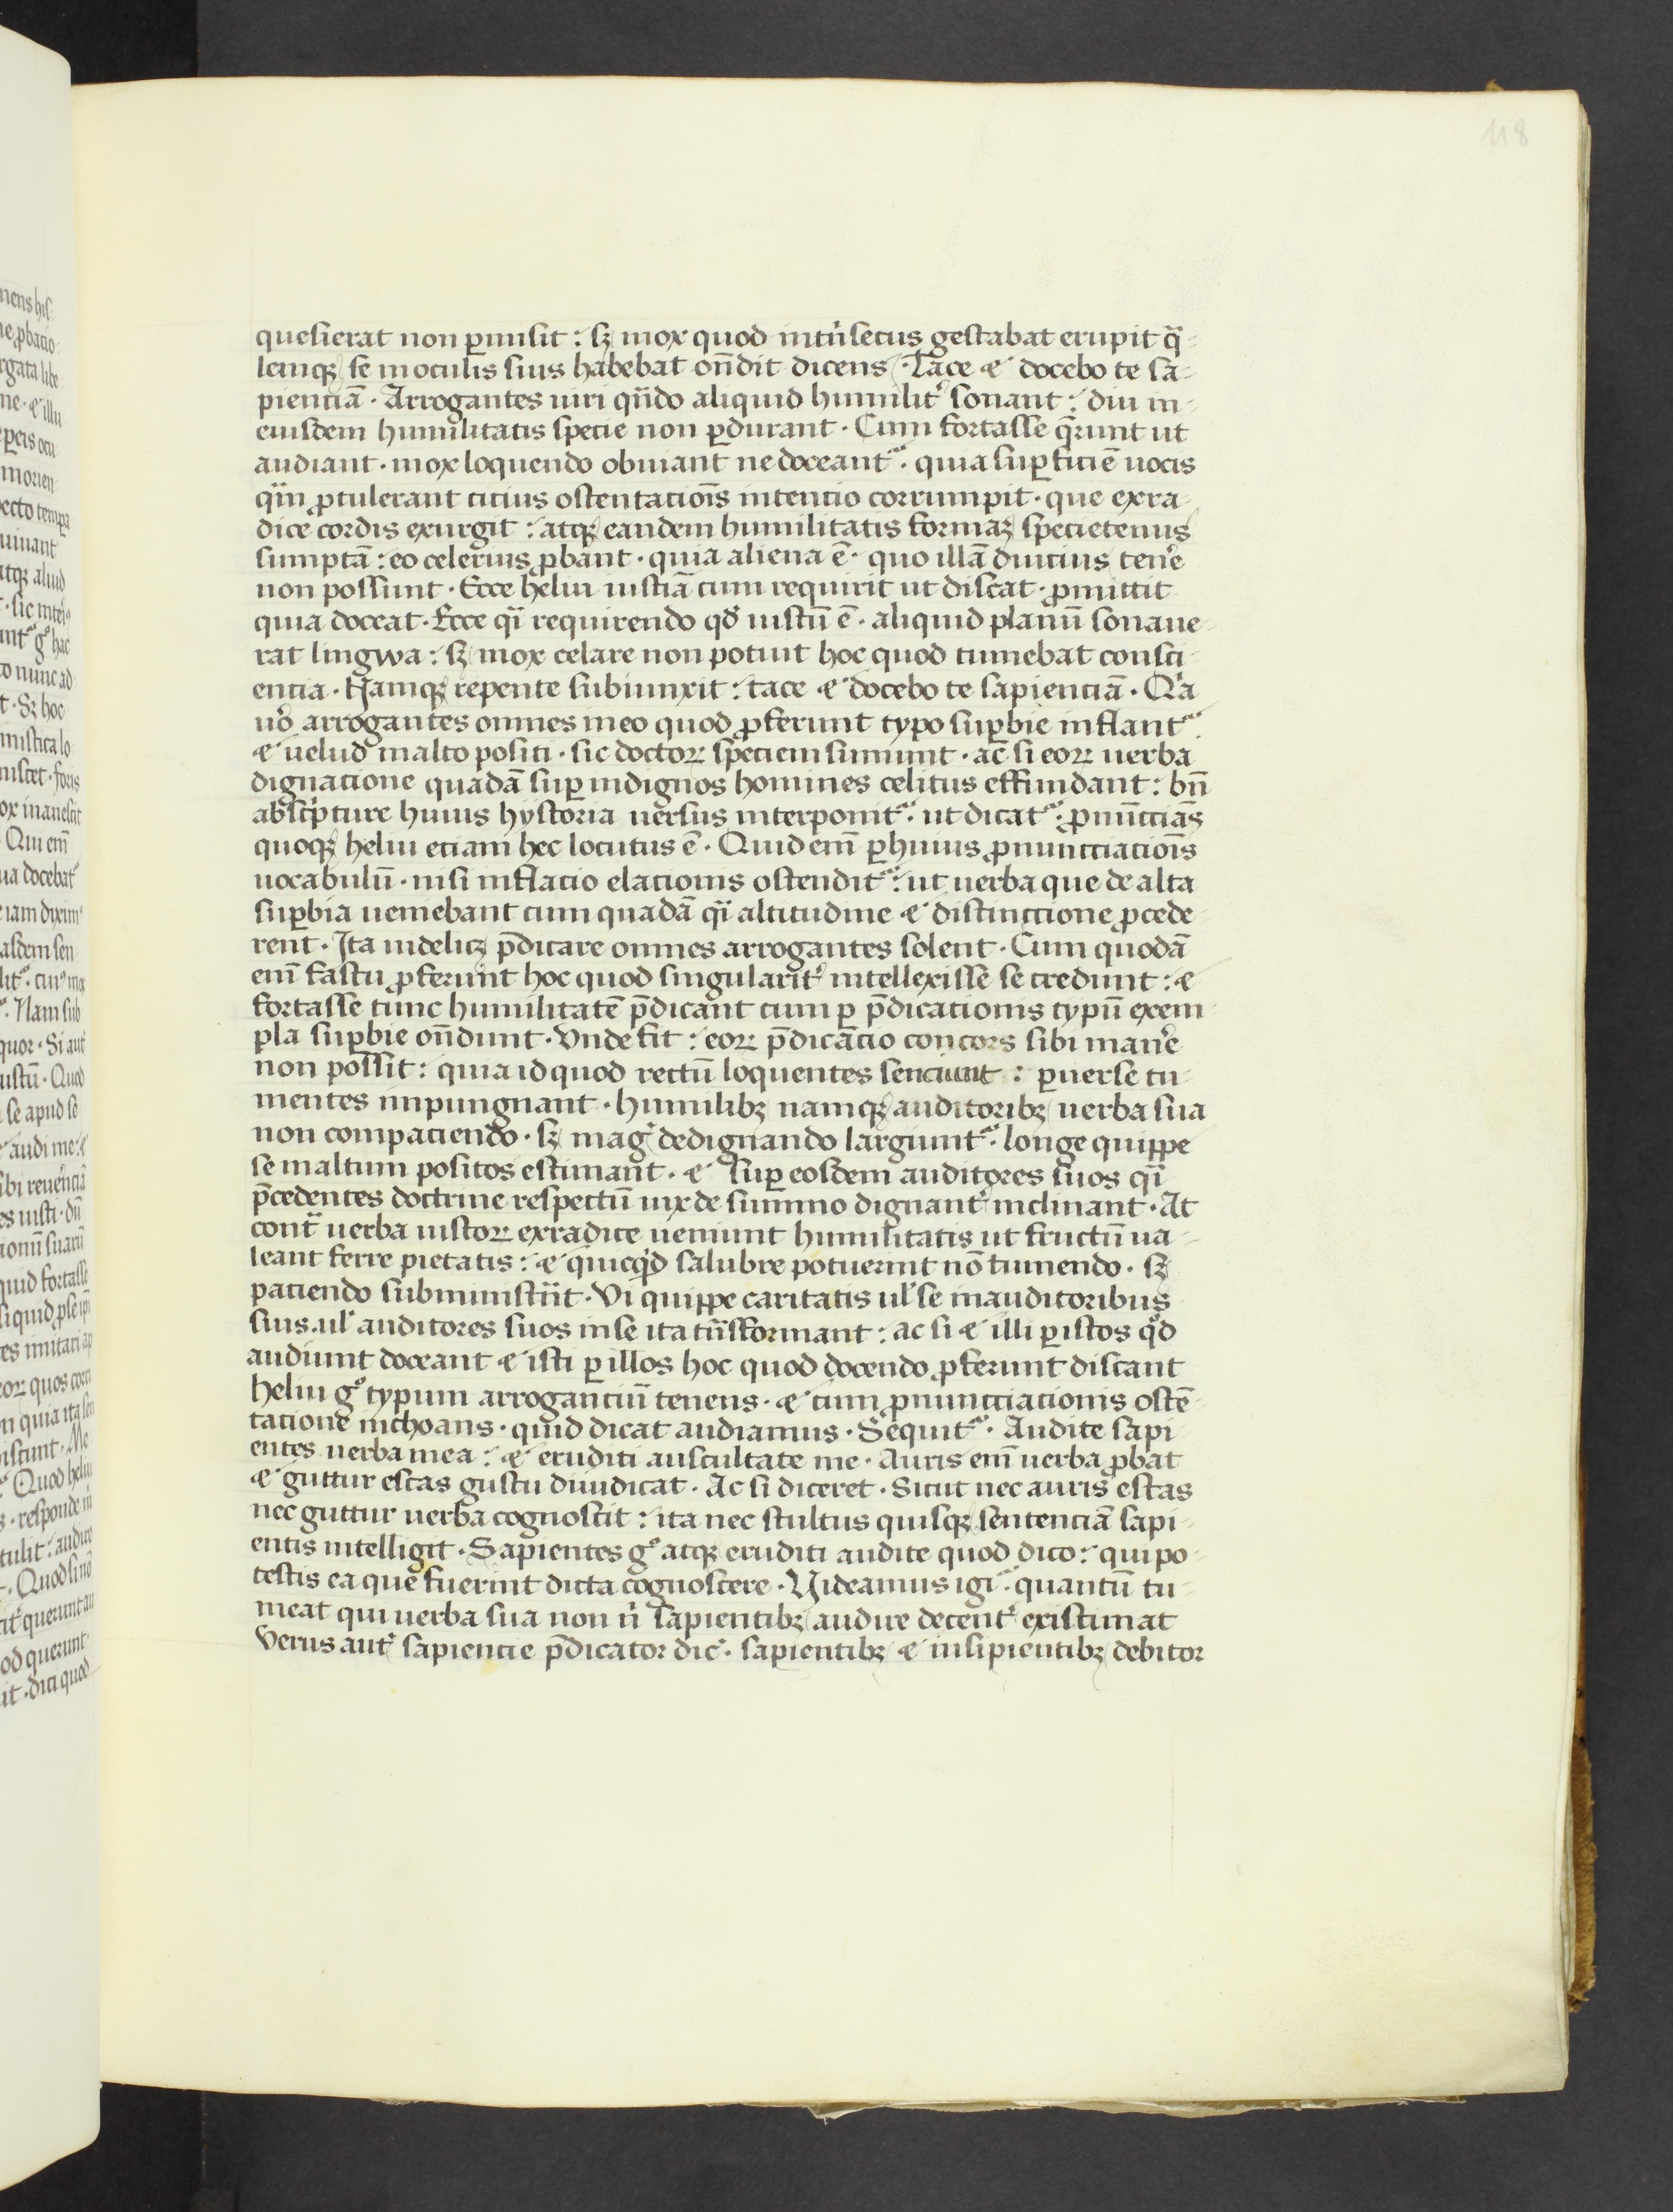 118
quesierat non ꝑmisit : sꝫ mox quod int̾nsecus gestabat erupit q̄-
lemqꝫ se in oculis suis habebat on̄dit dicens · Tace ⁊ docebo te sa-
pienciā · Arrogantes uiri qn̄do aliquid humilit̾ sonant : diu in
eiusdem humilitatis specie non ꝑdurant · Cum fortasse q̄runt ut
audiant · mox loquendo obuiant ne doceant᷑ · quia suꝑficiē uocis
qͣm ꝓtulerant cicius ostentacioīs intencio corrumpit · que ex ra-
dice cordis exurgit : atqꝫ eandem humilitatis formaꝫ specietenus
sumptā : eo celerius ꝓbant · quia aliena ē · quo illā diucius ten̾e
non possunt · Ecce heliu iusticiā cum requirit ut discat · ꝓmittit
quia doceat · Ecce qͣi requirendo qd̾ iustū ē · aliquid planū sonaue-
rat lingwa : sꝫ mox celare non potuit hoc quod tumebat consci-
encia · Namqꝫ repente subiunxit : tace ⁊ docebo te sapienciā · Qͥa
uo̾ arrogantes omnes in eo quod ꝓferunt typo suꝑbie inflant᷑
⁊ uelud in alto positi · sic doctoꝝ speciem sumunt · ac si eoꝝ uerba
dignacione quadā suꝑ indignos homines celitus effundant : bn̄
ab sc̾pture huius hystoria uersus interponit᷑ · ut dicat᷑ · ꝓnūccians
quoqꝫ heliu eciam hec locutus ē · Quid em̄ ꝑ huius ꝓnuncciacioīs
uocabulū · nisi inflacio elacionis ostendit᷑ : ut uerba que de alta
suꝑbia ueniebant cum quadā qͣi altitudine ⁊ distinccione ꝓcede-
rent · Ita uidelicꝫ p̄dicare omnes arrogantes solent · Cum quodā
em̄ fastu ꝓferunt hoc quod singularit̾ intellexisse se credunt : ⁊
fortasse tunc humilitatē p̄dicant cum ꝑ p̄dicacionis typū exem
pla suꝑbie on̄dunt · Vnde fit : eoꝝ p̄dicacio concors sibi man̾e
non possit : quia id quod rectū loquentes senciunt : ꝑuerse tu-
mentes inpungnant · humilibꝫ namqꝫ auditoribꝫ uerba sua
non compaciendo · sꝫ mag̾ dedignando largiunt᷑ · longe quippe
se in altum positos estimant · ⁊ suꝑ eosdem auditores suos qͣi
p̄cedentes doctrine respectū uix de summo dignant᷑ inclinant · At
contͣ uerba iustoꝝ ex radice ueniunt humilitatis ut fructū ua-
leant ferre pietatis : ⁊ quicqͥd salubre potuerint nō tumendo · sꝫ
paciendo subministͣnt · Vi quippe caritatis ul̾ se in auditoribus
suis ul̾ auditores suos in se ita tͣnsformant : ac si ⁊ illi ꝑ istos qͦd
audiunt doceant ⁊ isti ꝑ illos hoc quod docendo ꝓferunt discant
heliu gͦ typum arroganciū tenens · ⁊ cum ꝓnuncciacionis ostē-
tacione inchoans · quid dicat audiamus · Sequit᷑ · Audite sapi
entes uerba mea : ⁊ eruditi auscultate me · Auris em̄ uerba ꝓbat
⁊ guttur escas gustu diiudicat · Ac si diceret · Sicut nec auris escas
nec guttur uerba cognoscit : ita nec stultus quisqꝫ sentenciā sapi-
entis intelligit · Sapientes gͦ atqꝫ eruditi audite quod dico : qui po-
testis ea que fuerint dicta cognoscere · Uideamus igi᷑ · quantū tu-
meat qui uerba sua non n̾ sapientibꝫ audire decent̾ existimat
Verus aut̾ sapiencie p̄dicator dic̾ · sapientibꝫ ⁊ insipientibꝫ debitor